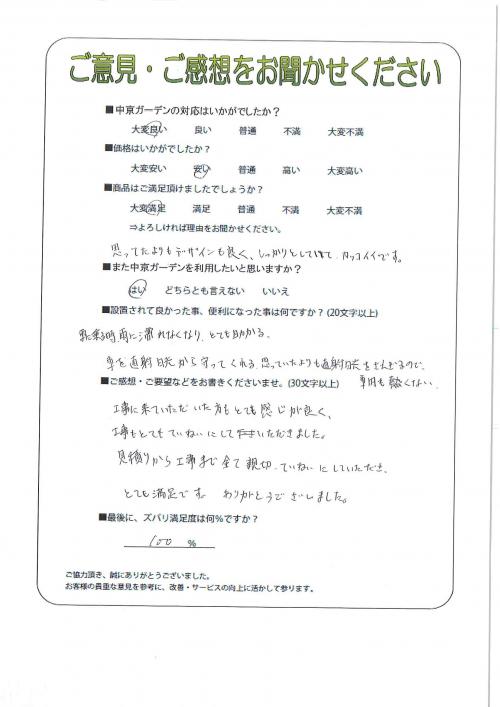 ご意見・ご感想をお聞かせください
■中京ガーデンの対応はいかがでしたか？
大変良い 良い 普通 不満 大変不満
■価格はいかがでしたか？
大変安い 安い 普通 高い 大変高い
■商品はご満足頂けましたでしょうか？
大変満足 満足 普通 不満 大変不満
⇒よろしければ理由をお聞かせください。
思ってたよりもデザインも良く、しっかりとしていて カッコイイです。
■また中京ガーデンを利用したいと思いますか？
はい どちらとも言えない いいえ
■設置されて良かった事、便利になった事は何ですか？(20文字以上)
時雨に濡れなくなり、とても助かる。
車を直射日光から守ってくれる。思っていたよりも直射日光をさえぎるので、
車内も熱くない。
■ご感想・ご要望などをお書きくださいませ。(30文字以上)
工事に来ていただいた方もとても感じが良く、
工事もとてもていねいにしていただきました。
見積りから工事まで全て親切、ていねいにしていただき、
とても満足です。ありがとうございました。
■最後に、ズバリ満足度は何%ですか？
100 %
ご協力頂き、誠にありがとうございました。
お客様の貴重な意見を参考に、改善・サービスの向上に活かして参ります。